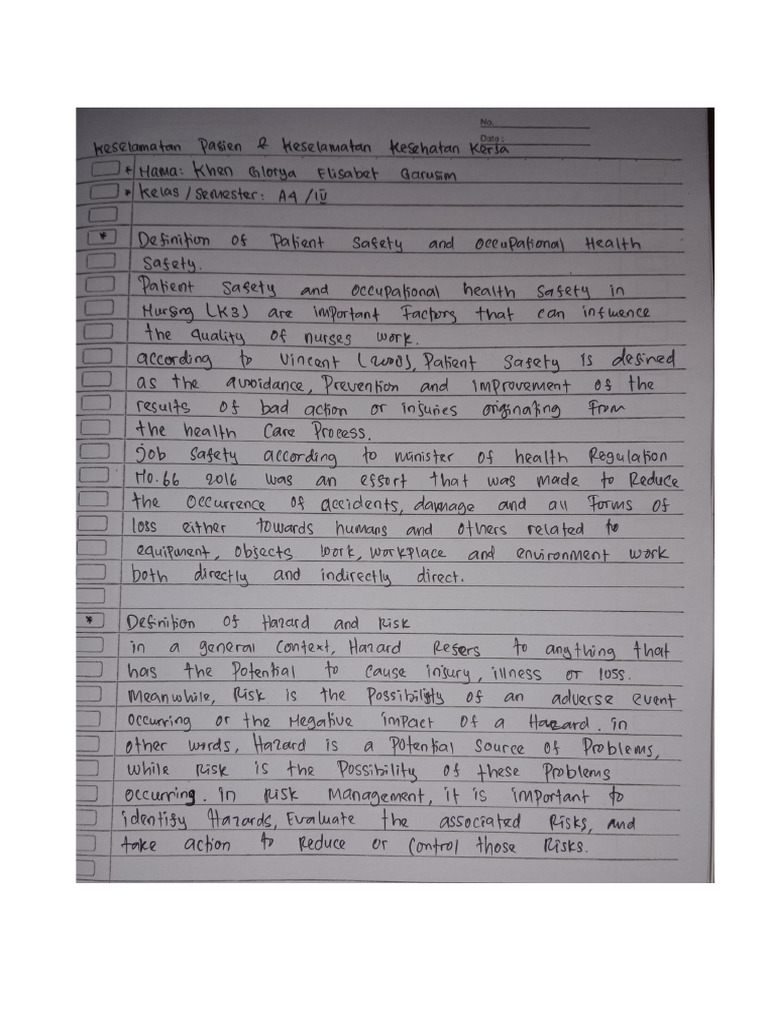 No.
Date:
Keselamatan Pasien & Keselamatan Kesehatan Kerja
* Nama: Khen Glorya Elisabet Garusim
* Kelas / Semester: A4 / IV
* Definition of Patient Safety and Occupational Health
Safety.
Patient Safety and occupational health safety in
Nursing (K3) are important Factors that can influence
the quality of nurses work.
according to Vincent (2008), Patient Safety is defined
as the avoidance, Prevention and improvement of the
results of bad action or injuries originating from
the health Care Process.
job Safety according to minister of health Regulation
No. 66 2016 was an effort that was made to Reduce
the occurrence of accidents, damage and all forms of
loss either towards humans and others related to
equipment, objects work, workplace and environment work
both directly and indirectly direct.
* Definition of Hazard and Risk
in a general context, Hazard Refers to anything that
has the Potential to cause injury, illness or loss.
Meanwhile, Risk is the Possibility of an adverse event
occurring or the Negative impact of a Hazard. in
other words, Hazard is a Potential Source of Problems,
while Risk is the Possibility of these Problems
occurring. in Risk Management, it is important to
identify Hazards, Evaluate the associated Risks, and
take action to Reduce or Control those Risks.